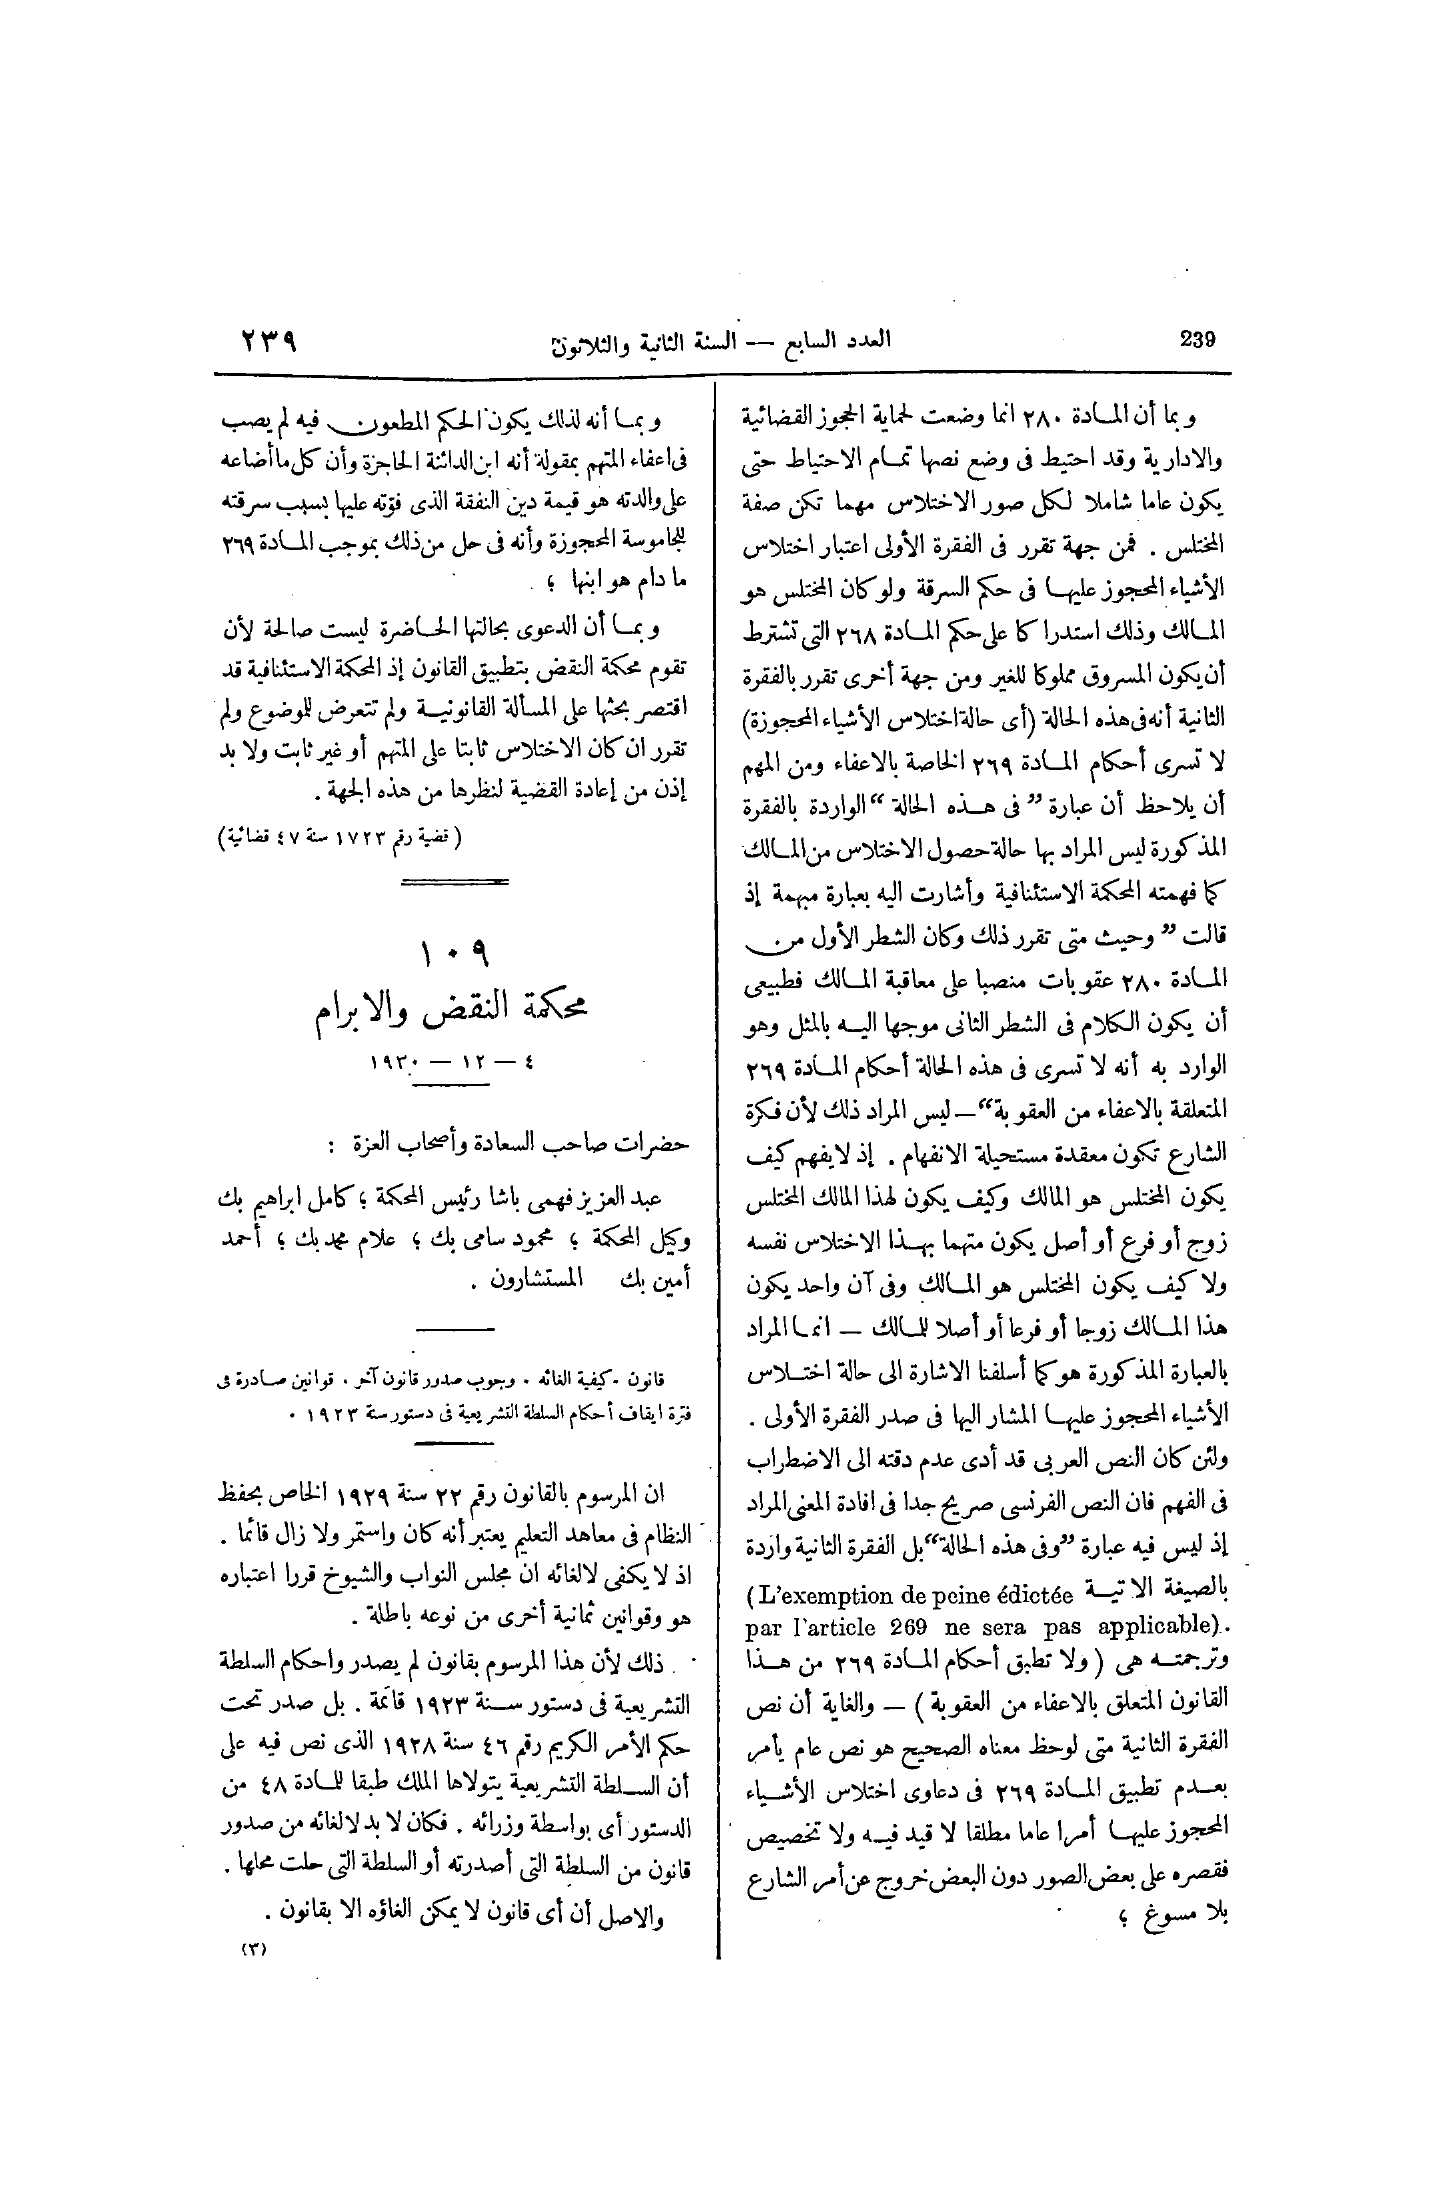 239
العدد السابع — السنة الثانية والثلاثون
٢٣٩
وبما أن المادة ٢٨٠ انما وضعت لحماية الحجوز القضائية
والادارية وقد احتيط فى وضع نصها تمام الاحتياط حتى
يكون عاما شاملا لكل صور الاختلاس مهما تكن صفة
المختلس . فمن جهة تقرر فى الفقرة الأولى اعتبار اختلاس
الأشياء المحجوز عليها فى حكم السرقة ولو كان المختلس هو
المالك وذلك استدرا كا على حكم المادة ٢٦٨ التى تشترط
أن يكون المسروق مملوكا للغير ومن جهة أخرى تقرر بالفقرة
الثانية أنه فى هذه الحالة (أى حالة اختلاس الأشياء المحجوزة)
لا تسرى أحكام المادة ٢٦٩ الخاصة بالاعفاء ومن المهم
أن يلاحظ أن عبارة ” فى هذه الحالة “ الواردة بالفقرة
المذكورة ليس المراد بها حالة حصول الاختلاس من المالك
كما فهمته المحكمة الاستئنافية وأشارت اليه بعبارة مبهمة إذ
قالت ” وحيث متى تقرر ذلك وكان الشطر الأول من
المادة ٢٨٠ عقوبات منصبا على معاقبة المالك فطبيعى
أن يكون الكلام فى الشطر الثانى موجها اليه بالمثل وهو
الوارد به أنه لا تسرى فى هذه الحالة أحكام المادة ٢٦٩
المتعلقة بالاعفاء من العقوبة“ — ليس المراد ذلك لأن فكرة
الشارع تكون معقدة مستحيلة الانفهام . إذ لا يفهم كيف
يكون المختلس هو المالك وكيف يكون لهذا المالك المختلس
زوج أو فرع أو أصل يكون متهما بهذا الاختلاس نفسه
ولا كيف يكون المختلس هو المالك وفى آن واحد يكون
هذا المالك زوجا أو فرعا أو أصلا للمالك — انما المراد
بالعبارة المذكورة هو كما أسلفنا الاشارة الى حالة اختلاس
الأشياء المحجوز عليها المشار اليها فى صدر الفقرة الأولى .
ولئن كان النص العربى قد أدى عدم دقته الى الاضطراب
فى الفهم فان النص الفرنسى صريح جدا فى افادة المعنى المراد
إذ ليس فيه عبارة ”وفى هذه الحالة“ بل الفقرة الثانية واردة
بالصيغة الاتية (L'exemption de peine édictée
par l'article 269 ne sera pas applicable).
وترجمته هى ( ولا تطبق أحكام المادة ٢٦٩ من هذا
القانون المتعلق بالاعفاء من العقوبة ) — والغاية أن نص
الفقرة الثانية متى لوحظ معناه الصحيح هو نص عام يأمر
بعدم تطبيق المادة ٢٦٩ فى دعاوى اختلاس الأشياء
المحجوز عليها أمرا عاما مطلقا لا قيد فيه ولا تخصيص
فقصره على بعض الصور دون البعض خروج عن أمر الشارع
بلا مسوغ ؛
وبما أنه لذلك يكون الحكم المطعون فيه لم يصب
فى اعفاء المتهم بمقولة أنه ابن الدائنة الحاجزة وأن كل ما أضاعه
على والدته هو قيمة دين النفقة الذى فوّته عليها بسبب سرقته
للجاموسة المحجوزة وأنه فى حل من ذلك بموجب المادة ٢٦٩
ما دام هو ابنها ؛
وبما أن الدعوى بحالتها الحاضرة ليست صالحة لأن
تقوم محكمة النقض بتطبيق القانون إذ المحكمة الاستئنافية قد
اقتصر بحثها على المسألة القانونية ولم تتعرض للموضوع ولم
تقرر ان كان الاختلاس ثابتا على المتهم أو غير ثابت ولا بد
إذن من إعادة القضية لنظرها من هذه الجهة .
( قضية رقم ١٧٢٣ سنة ٤٧ قضائية)
١٠٩
محكمة النقض والابرام
٤ — ١٢ — ١٩٣٠
حضرات صاحب السعادة وأصحاب العزة :
عبد العزيز فهمى باشا رئيس المحكمة ؛ كامل ابراهيم بك
وكيل المحكمة ؛ محمود سامى بك ؛ علام محمد بك ؛ أحمد
أمين بك المستشارون .
قانون . كيفية الغائه . وجوب صدور قانون آخر . قوانين صادرة فى
فترة ايقاف أحكام السلطة التشريعية فى دستور سنة ١٩٢٣ .
ان المرسوم بالقانون رقم ٢٢ سنة ١٩٢٩ الخاص بحفظ
النظام فى معاهد التعليم يعتبر أنه كان واستمر ولا زال قائما .
اذ لا يكفى لالغائه ان مجلس النواب والشيوخ قررا اعتباره
هو وقوانين ثمانية أخرى من نوعه باطلة .
ذلك لأن هذا المرسوم بقانون لم يصدر واحكام السلطة
التشريعية فى دستور سنة ١٩٢٣ قائمة . بل صدر تحت
حكم الأمر الكريم رقم ٤٦ سنة ١٩٢٨ الذى نص فيه على
أن السلطة التشريعية يتولاها الملك طبقا للمادة ٤٨ من
الدستور أى بواسطة وزرائه . فكان لا بد لالغائه من صدور
قانون من السلطة التى أصدرته أو السلطة التى حلت محلها .
والاصل أن أى قانون لا يمكن الغاؤه الا بقانون .
(٣)